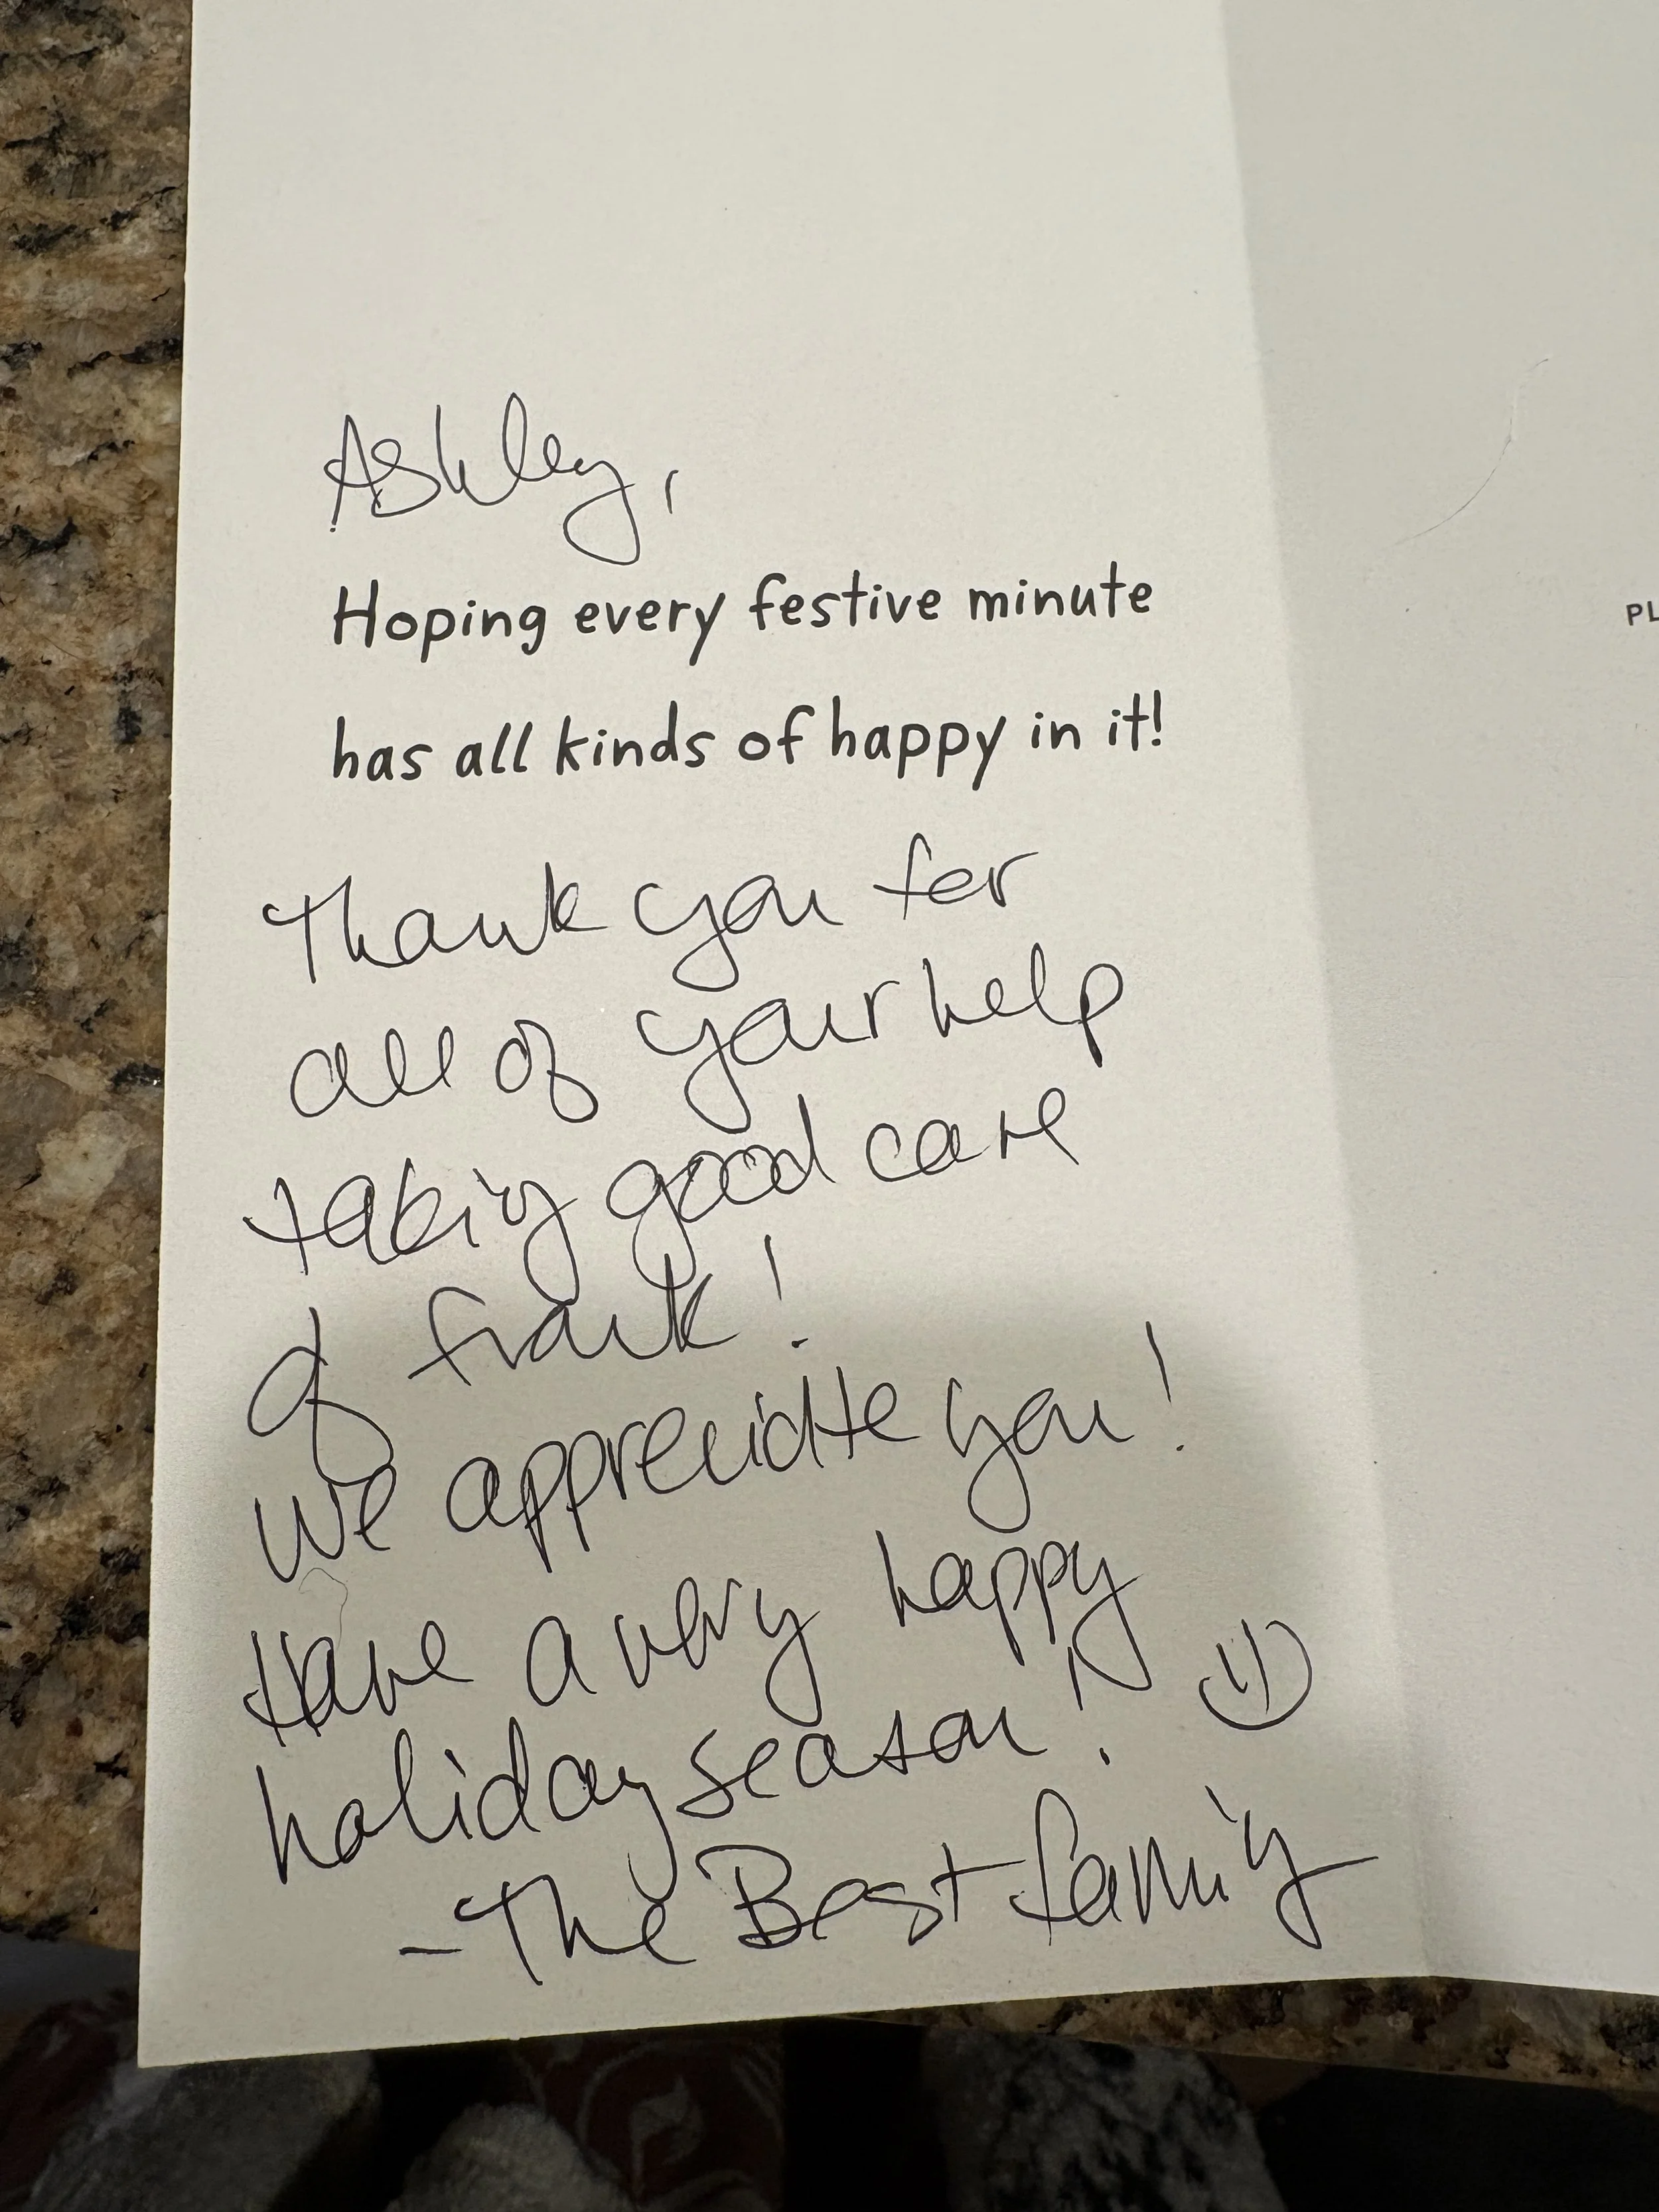 Ashley,
Hoping every festive minute
has all kinds of happy in it!
Thank you for
all of your help
taking good care
of Frank!
We appreciate you!
Have a very happy
holiday season! :)
- The Best family
PL